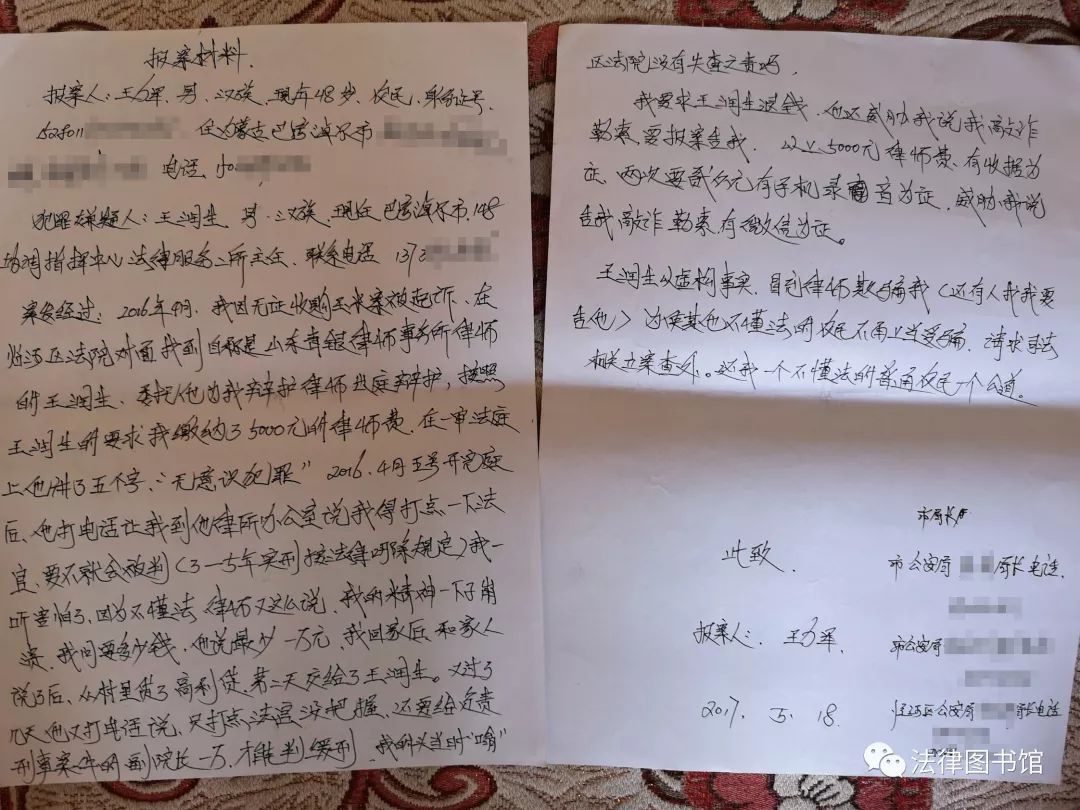 报案材料.
报案人：王力军，男，汉族，现年48岁，农民，身份证号
住内蒙古巴彦淖尔市
电话，150
犯罪嫌疑人：王润生，男，汉族，现任巴彦淖尔市，148
协调指挥中心法律服务二所主任，联系电话 1373
案发经过：2016年4月，我因无证收购玉米案被起诉，在
临河区法院对面找到自称是山东青银律师事务所律师
的王润生，委托他为我辩护律师出庭辩护，按照
王润生的要求我缴纳了5000元的律师费，在一审法庭
上他讲了五个字，“无意识犯罪” 2016.4月五号开完庭
后，他打电话让我到他律所办公室说我得打点一下法
官，要不就会被判（3—5年实刑按法律 规定）我一
听害怕了，因为不懂法 律师又这么说，我的精神一下子崩
溃，我问要多少钱，他说最少一万元，我回家后，和家人
说了后，从村里贷了高利贷，第二天交给了王润生。又过了
几天他又打电话说，只打点法官没把握，还要给负责
刑事案件的副院长一万，才能判缓刑，我的 当时“嗡”
区法院没有失查之责吗，
我要求王润生退钱，他还威胁我说我敲诈
勒索，要报案告我， 5000元律师费，有收据为
证，两次要贰万元有手机录 音为证，威胁我说
告我敲诈勒索，有微信为证。
王润生以虚构事实，冒充律师欺骗我（还有人找我要
告他）为使其他不懂法的农民不再上当受骗，请求司法
相关立案查处。还我一个不懂法的普通农民一个公道。
市局长
此致，
市公安局 局长电话，
报案人：王力军
市公安局
2017. 5. 18.
临河区公安局 局长电话
法律图书馆